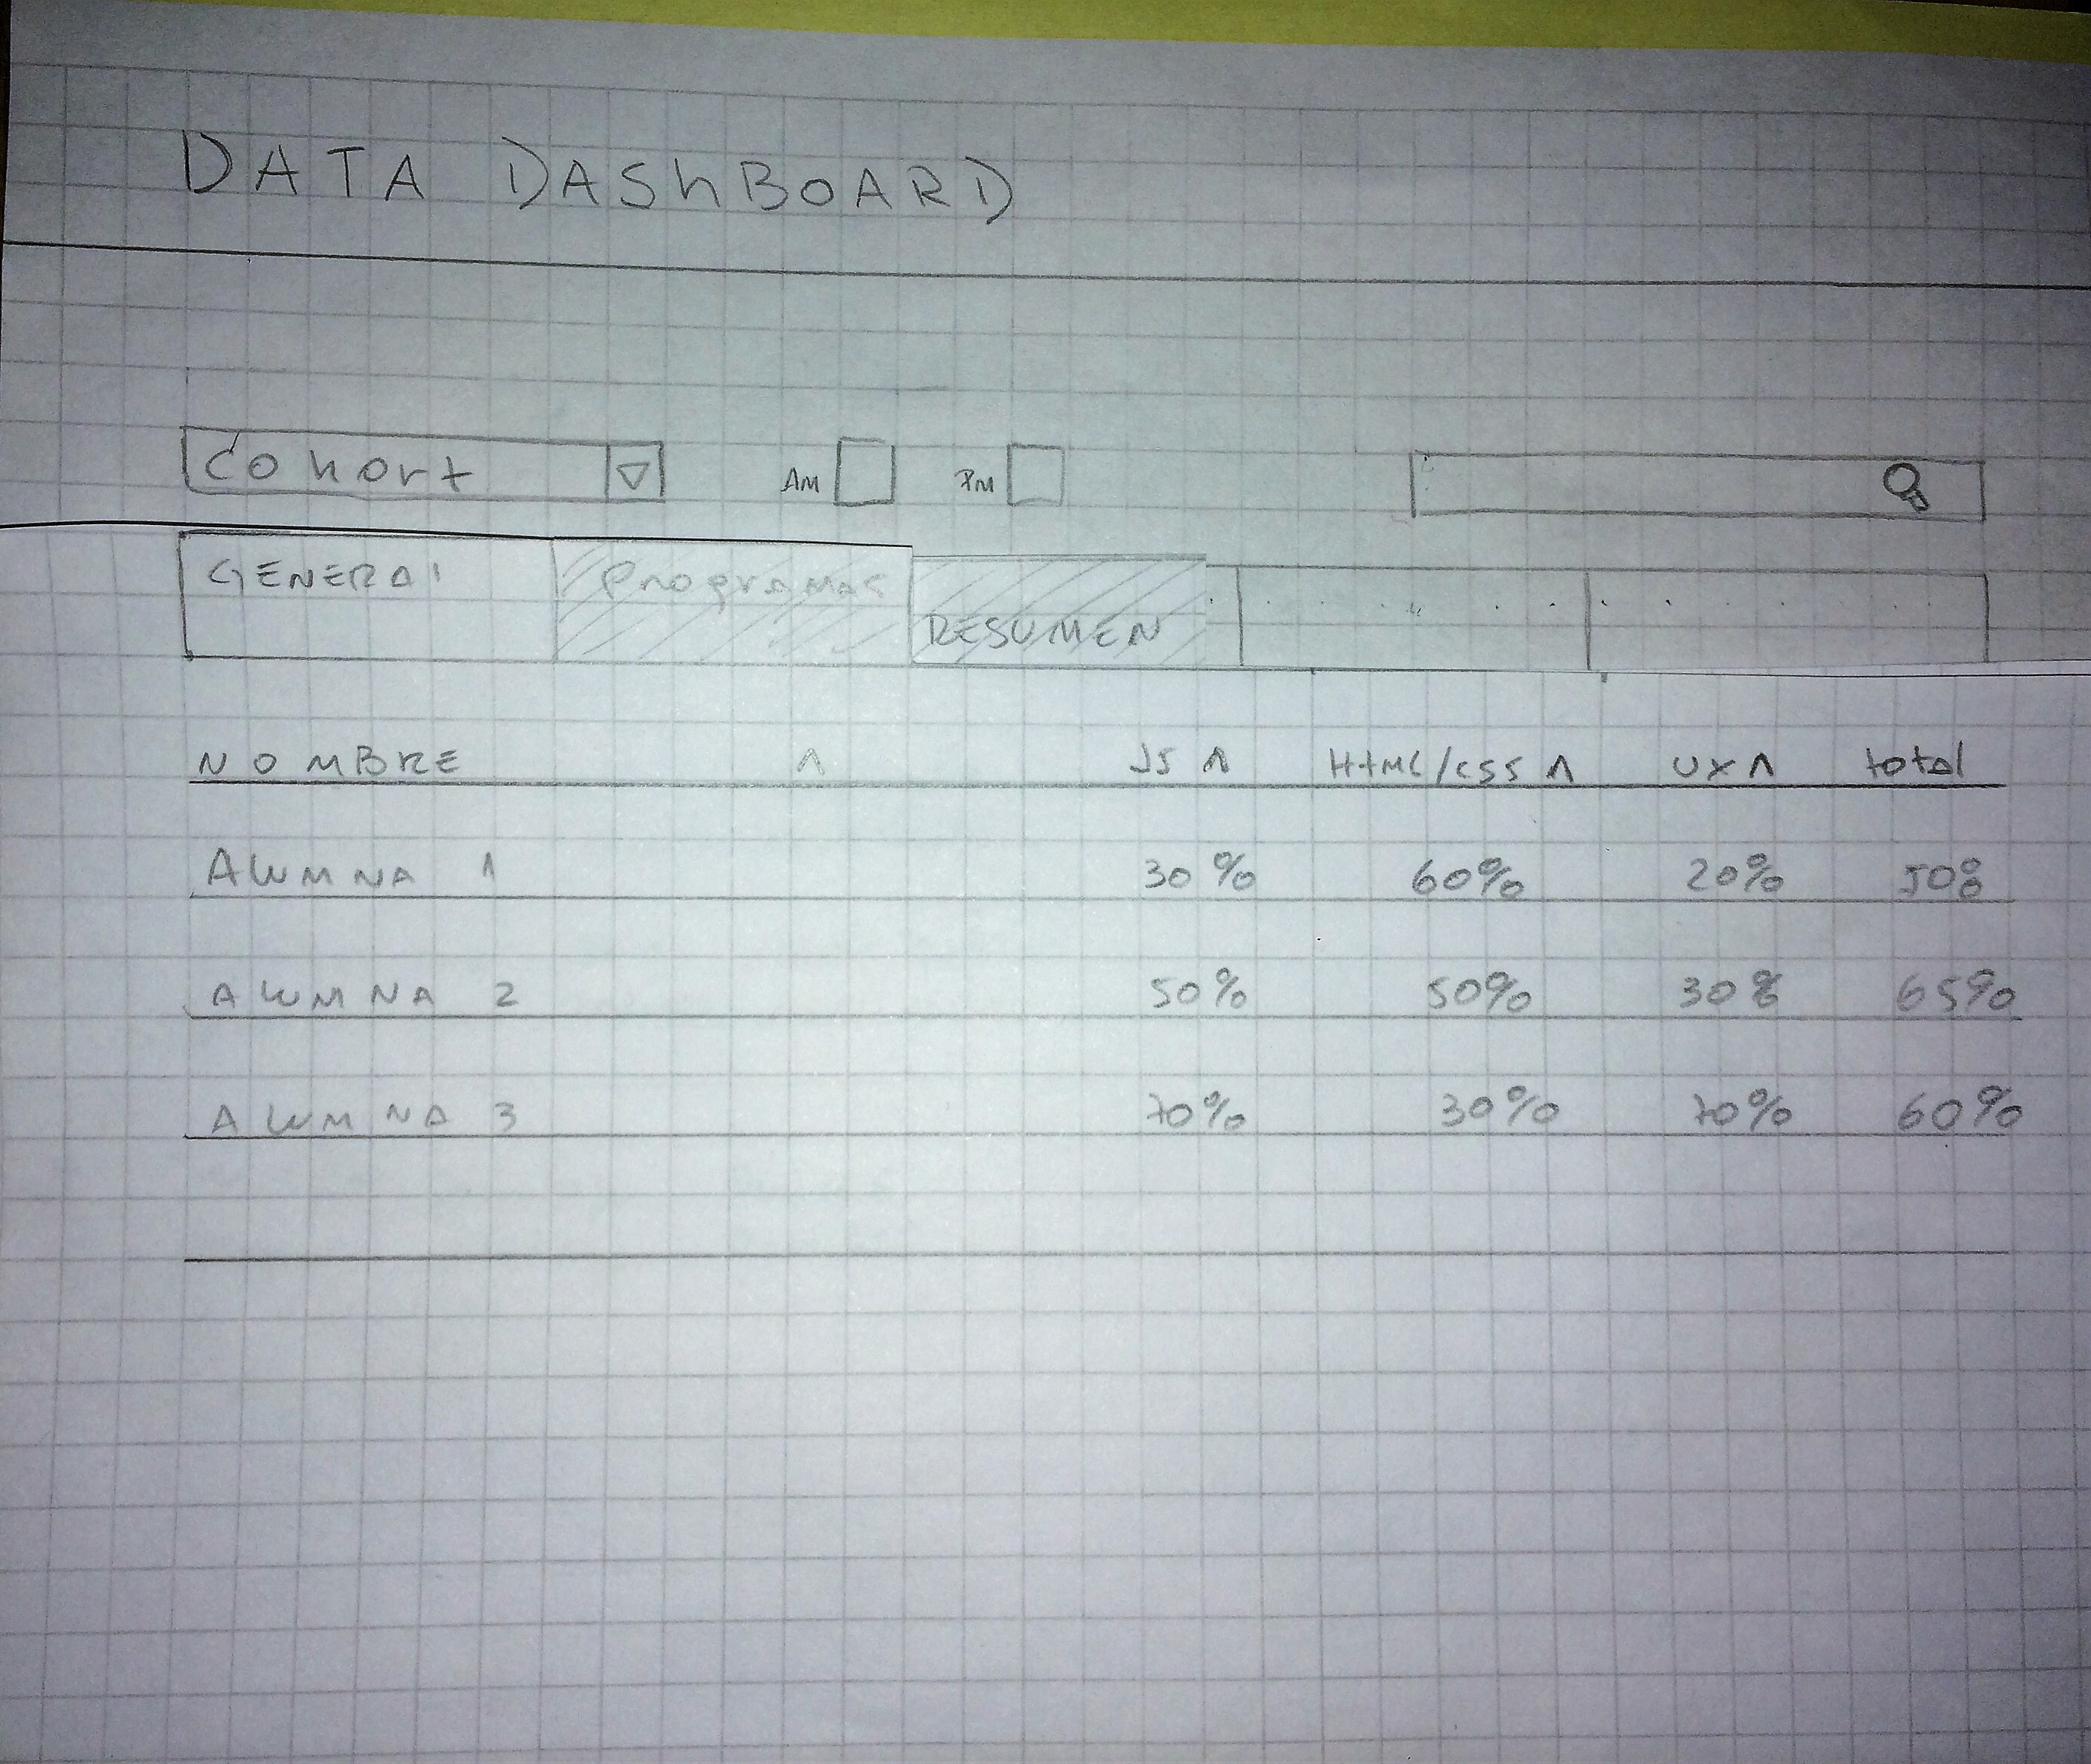 DATA DASHBOARD
Cohort AM PM
GENERAL Programas RESUMEN
NOMBRE JS HTML/CSS UX total
ALUMNA 1 30% 60% 20% 50%
ALUMNA 2 50% 50% 30% 65%
ALUMNA 3 70% 30% 70% 60%